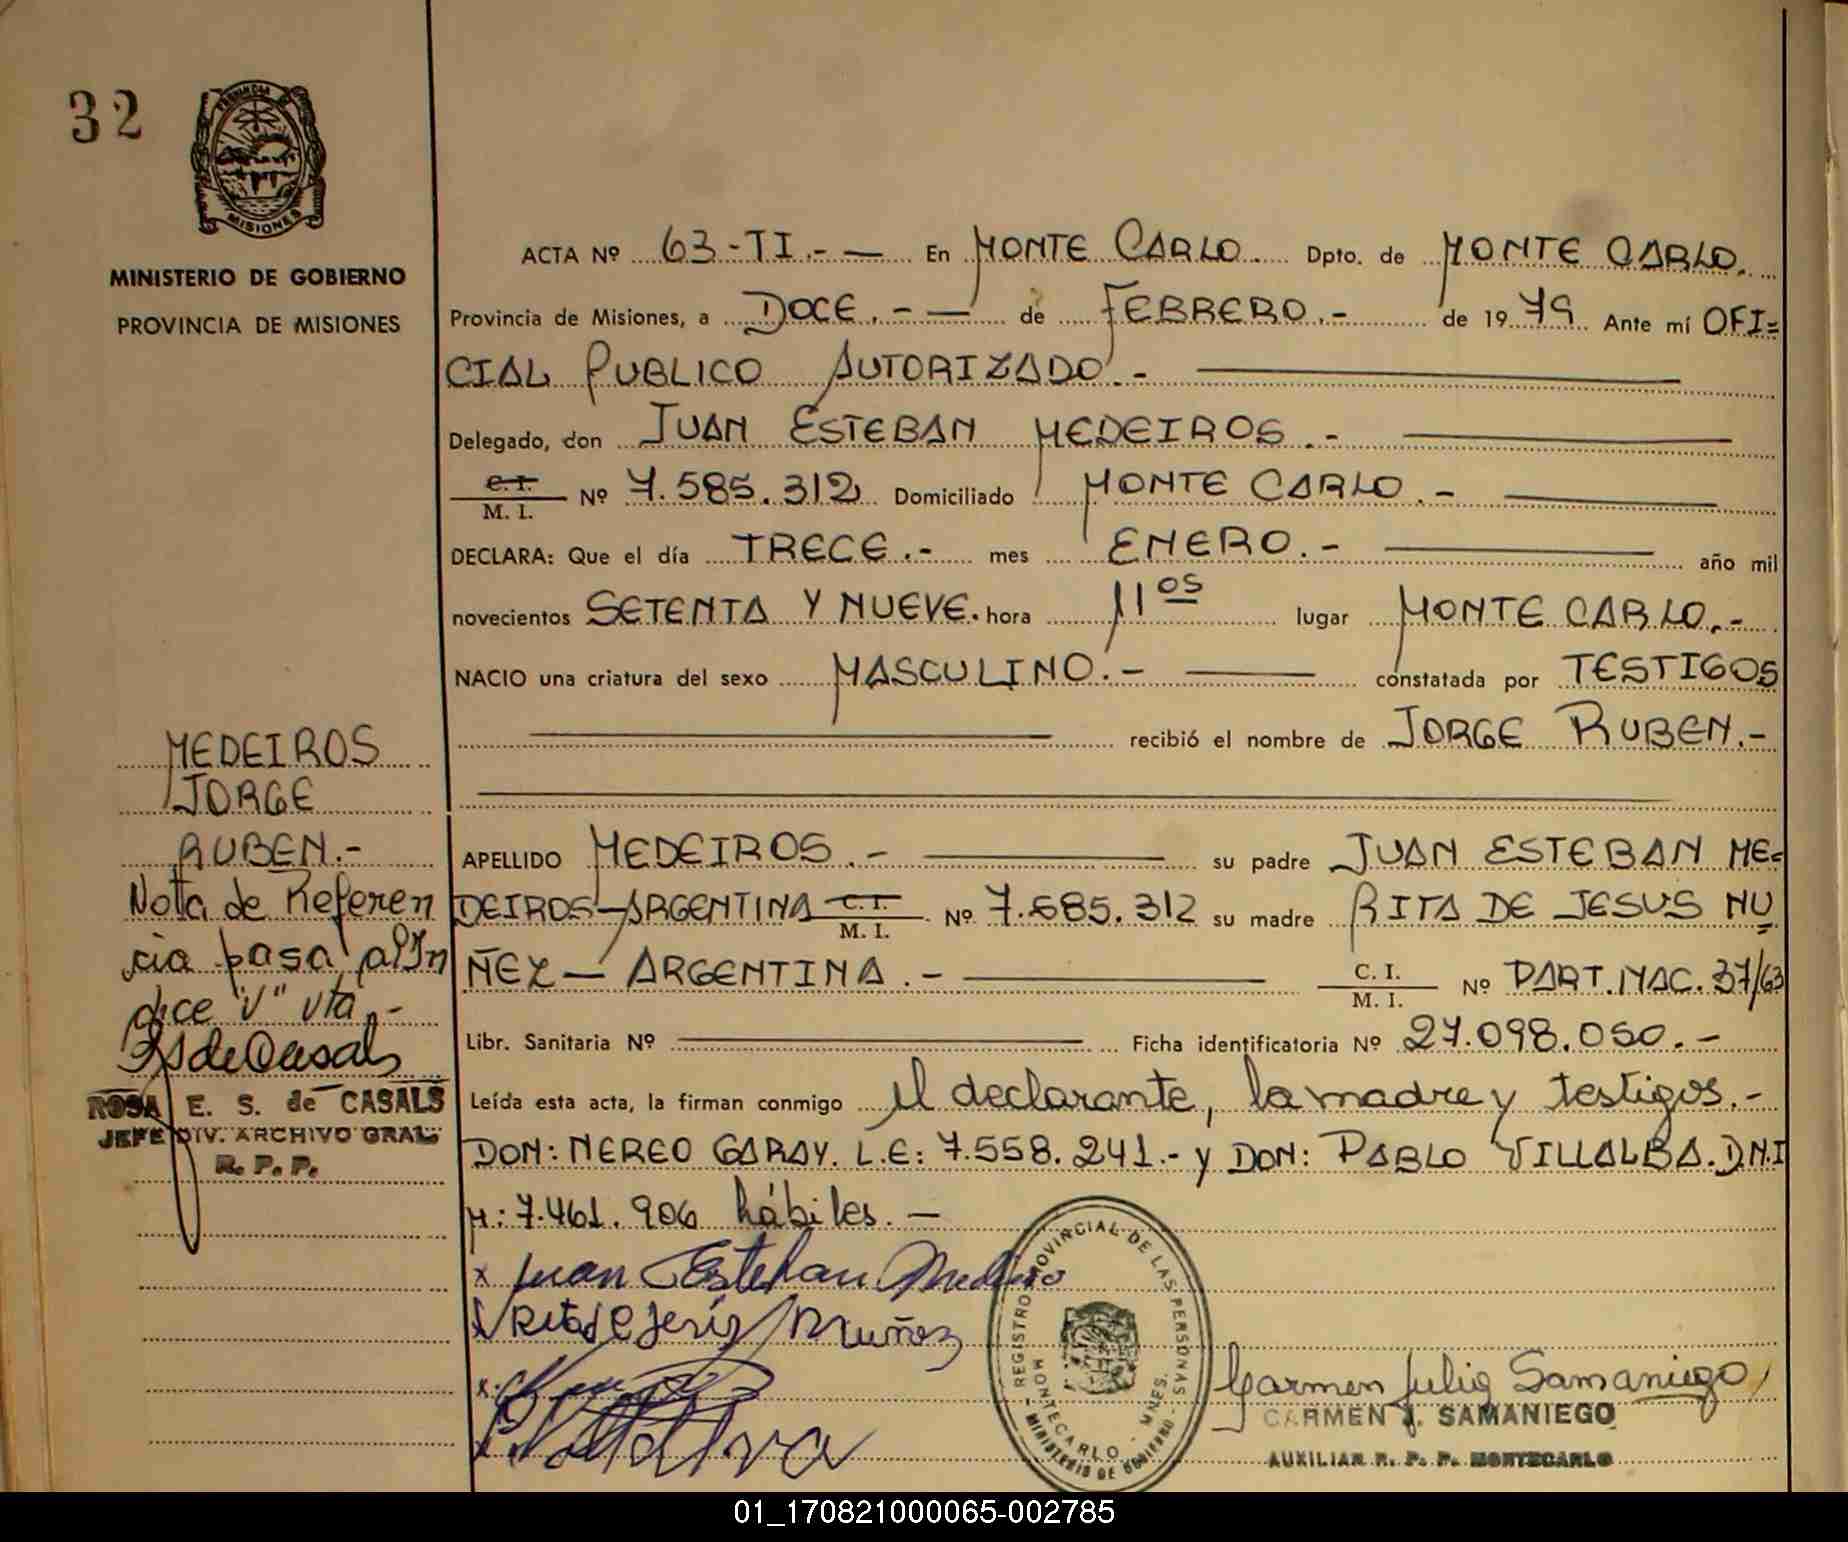 32
PROVINCIA DE
MISIONES
MINISTERIO DE GOBIERNO
PROVINCIA DE MISIONES
ACTA Nº 63-TI.- — En MONTE CARLO. Dpto. de MONTE CARLO.
Provincia de Misiones, a DOCE.- — de FEBRERO.- de 1979. Ante mí OFI=
CIAL PUBLICO AUTORIZADO.-
Delegado, don JUAN ESTEBAN MEDEIROS.-
C.I. / M. I. Nº 7.585.312 Domiciliado MONTE CARLO.-
DECLARA: Que el día TRECE.- mes ENERO.- año mil
novecientos SETENTA Y NUEVE. hora 11 os lugar MONTE CARLO.-
NACIO una criatura del sexo MASCULINO.- constatada por TESTIGOS
recibió el nombre de JORGE RUBEN.-
MEDEIROS
JORGE
RUBEN.-
APELLIDO MEDEIROS.- su padre JUAN ESTEBAN ME-
DEIROS-ARGENTINA C.I. / M. I. Nº 7.585.312 su madre RITA DE JESUS NU
ÑEZ — ARGENTINA.- C. I. / M. I. Nº PART.NAC. 37/63
Libr. Sanitaria Nº Ficha identificatoria Nº 27.098.050.-
Leída esta acta, la firman conmigo el declarante, la madre y testigos.-
DON: NEREO GARAY. L.E: 7.558.241.- y DON: PABLO VILLALBA. D.N.I
M: 7.461.906 hábiles.—
Nota de Referen
cia pasa al In
dice "V" vta.-
RS de Casals
ROSA E. S. de CASALS
JEFE DIV. ARCHIVO GRAL.
R. P. P.
x Juan Esteban Medeiro
x Rita de Jesús Nuñez
REGISTRO PROVINCIAL DE LAS PERSONAS
MONTECARLO - MNES.
MINISTERIO DE GOBIERNO
Carmen Julia Samaniego
CARMEN J. SAMANIEGO
AUXILIAR R. P. P. MONTECARLO
01_170821000065-002785